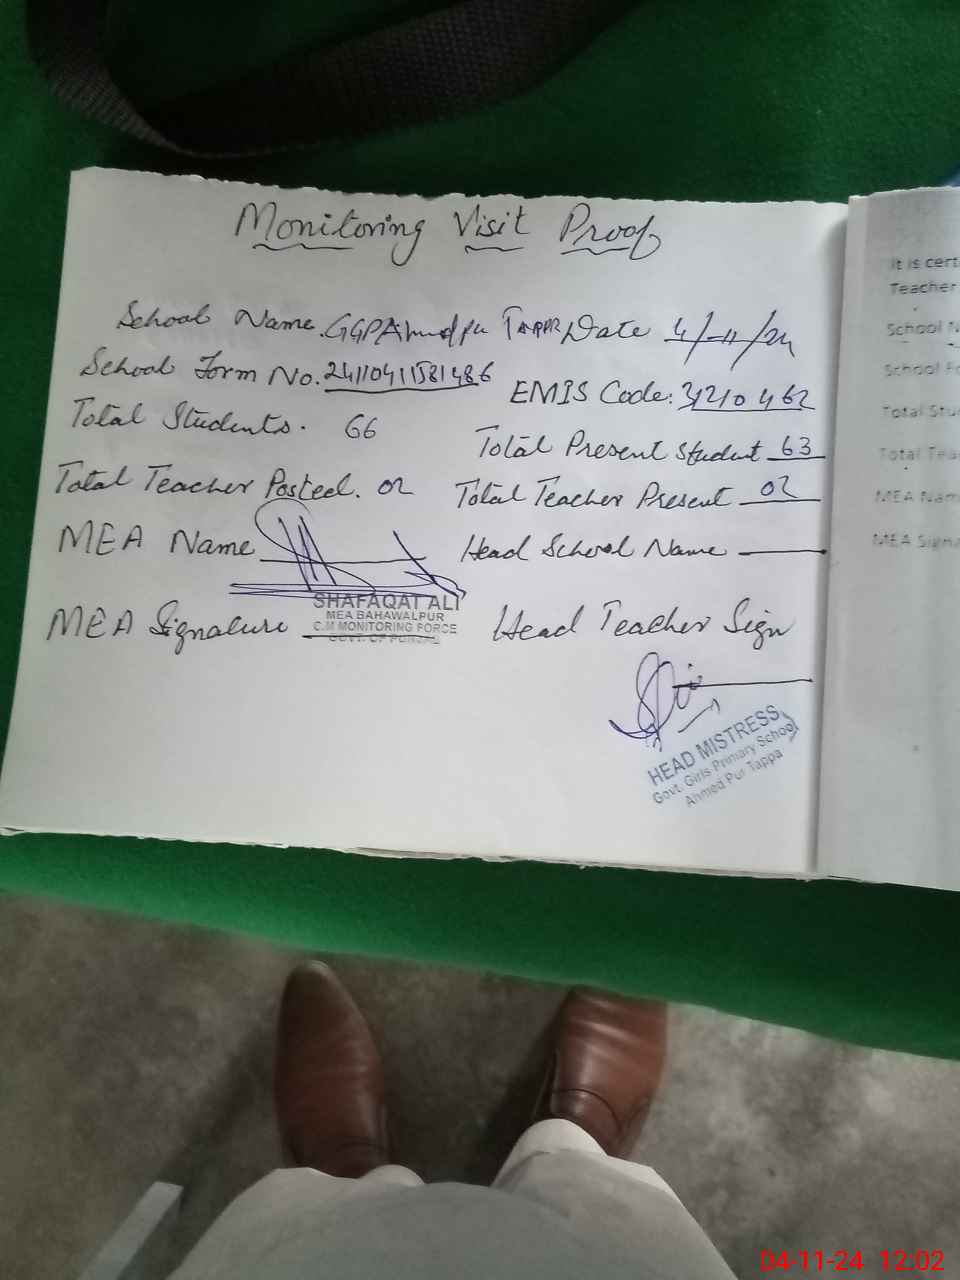 Monitoring Visit Proof
School Name. GGPS Ahmedpur Tappa Date 4/11/24
School Form No. 2411041581486 EMIS Code: 31210462
Total Students. 66 Total Present Student 63
Total Teacher Posted. 02 Total Teacher Present 02
MEA Name Head School Name
SHAFAQAT ALI
MEA BAHAWALPUR
C.M MONITORING FORCE
GOVT. OF PUNJAB
MEA Signature Head Teacher Sign
HEAD MISTRESS
Govt. Girls Primary School
Ahmed Pur Tappa
It is cert
Teacher
School N
School Fo
Total Stu
Total Tea
MEA Nam
MEA Signa
04-11-24 12:02